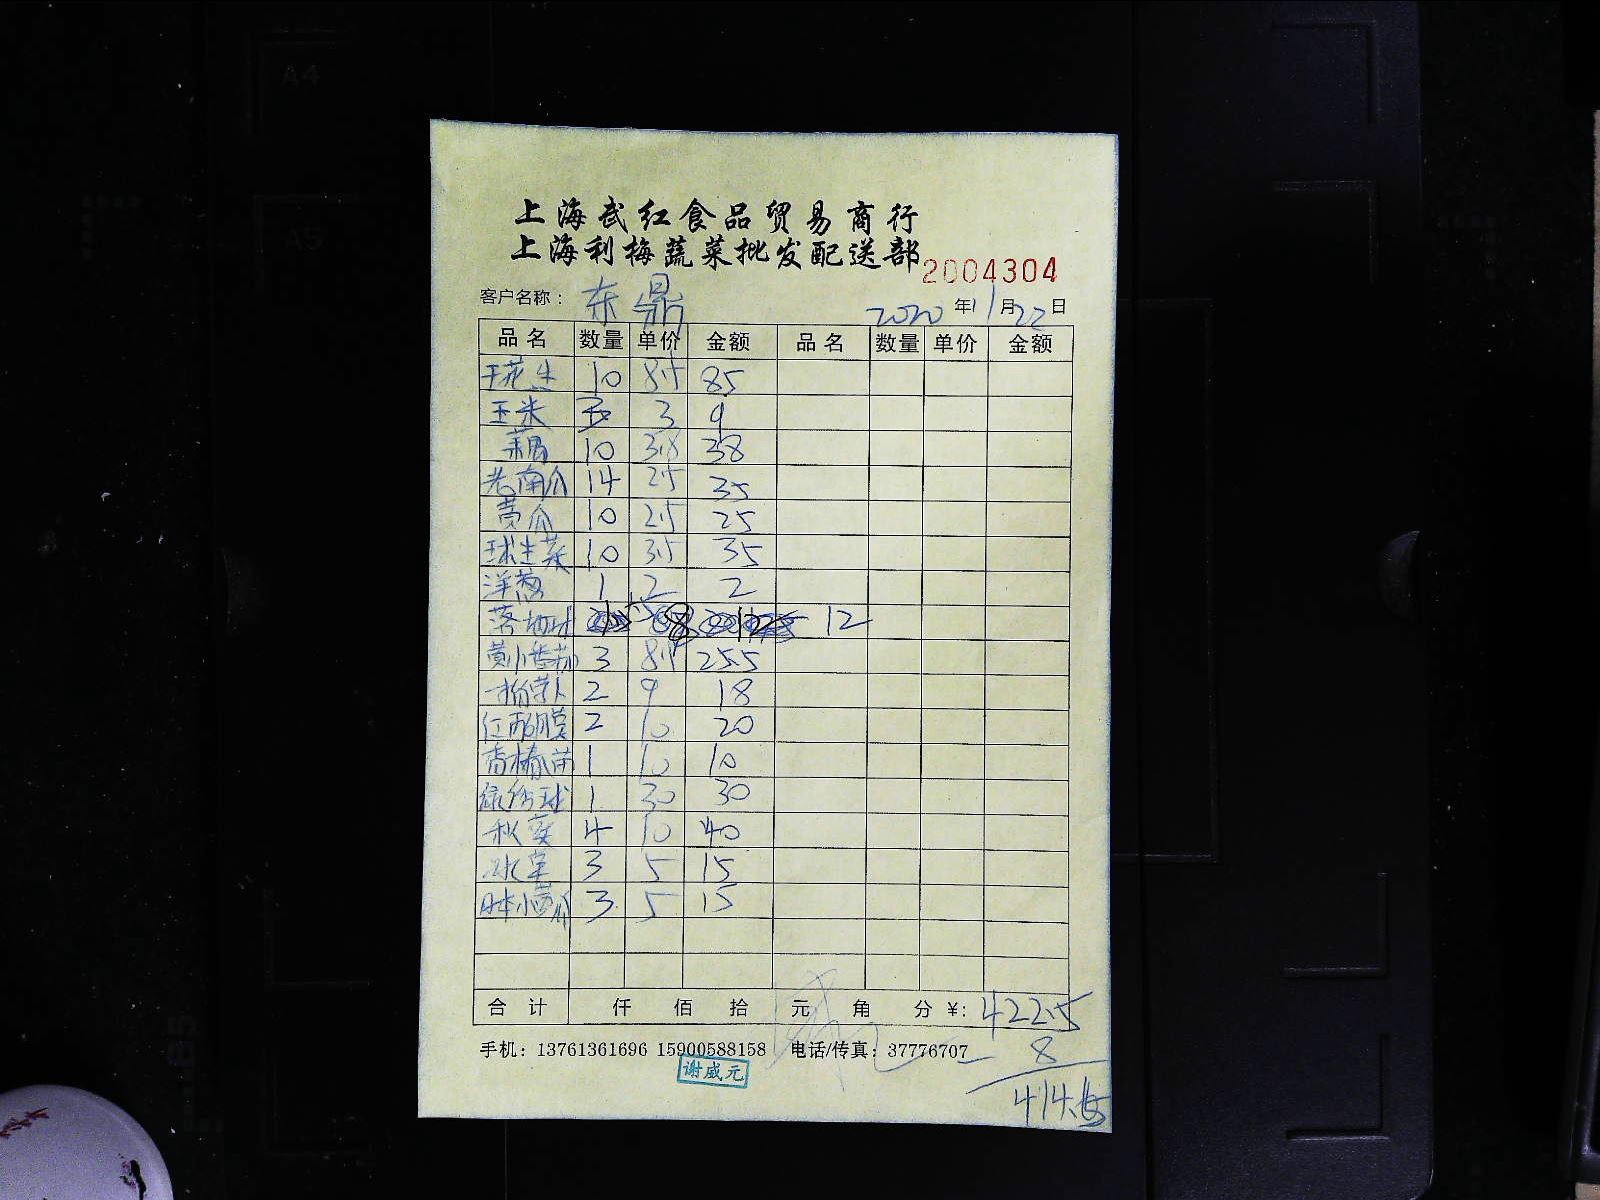 A4
A5
上海武红食品贸易商行
上海利梅蔬菜批发配送部
2004304
客户名称： 东鼎 2020年11月22日
品名 数量 单价 金额 品名 数量 单价 金额
花生 10 8.5 85
玉米 3 3 9
藕 10 3.8 38
老南瓜 14 2.5 35
黄瓜 10 2.5 25
球生菜 10 3.5 35
洋葱 1 2 2
落 8 12
黄小番茄 3 8.5 25.5
2 9 18
2 10 20
香椿苗 1 10 10
1 30 30
秋葵 4 10 40
冰草 3 5 15
日本小黄瓜 3 5 15
合计 仟 佰 拾 元 角 分 ¥: 422.5
手机：13761361696 15900588158 电话/传真：37776707 — 8
谢威元
414.5